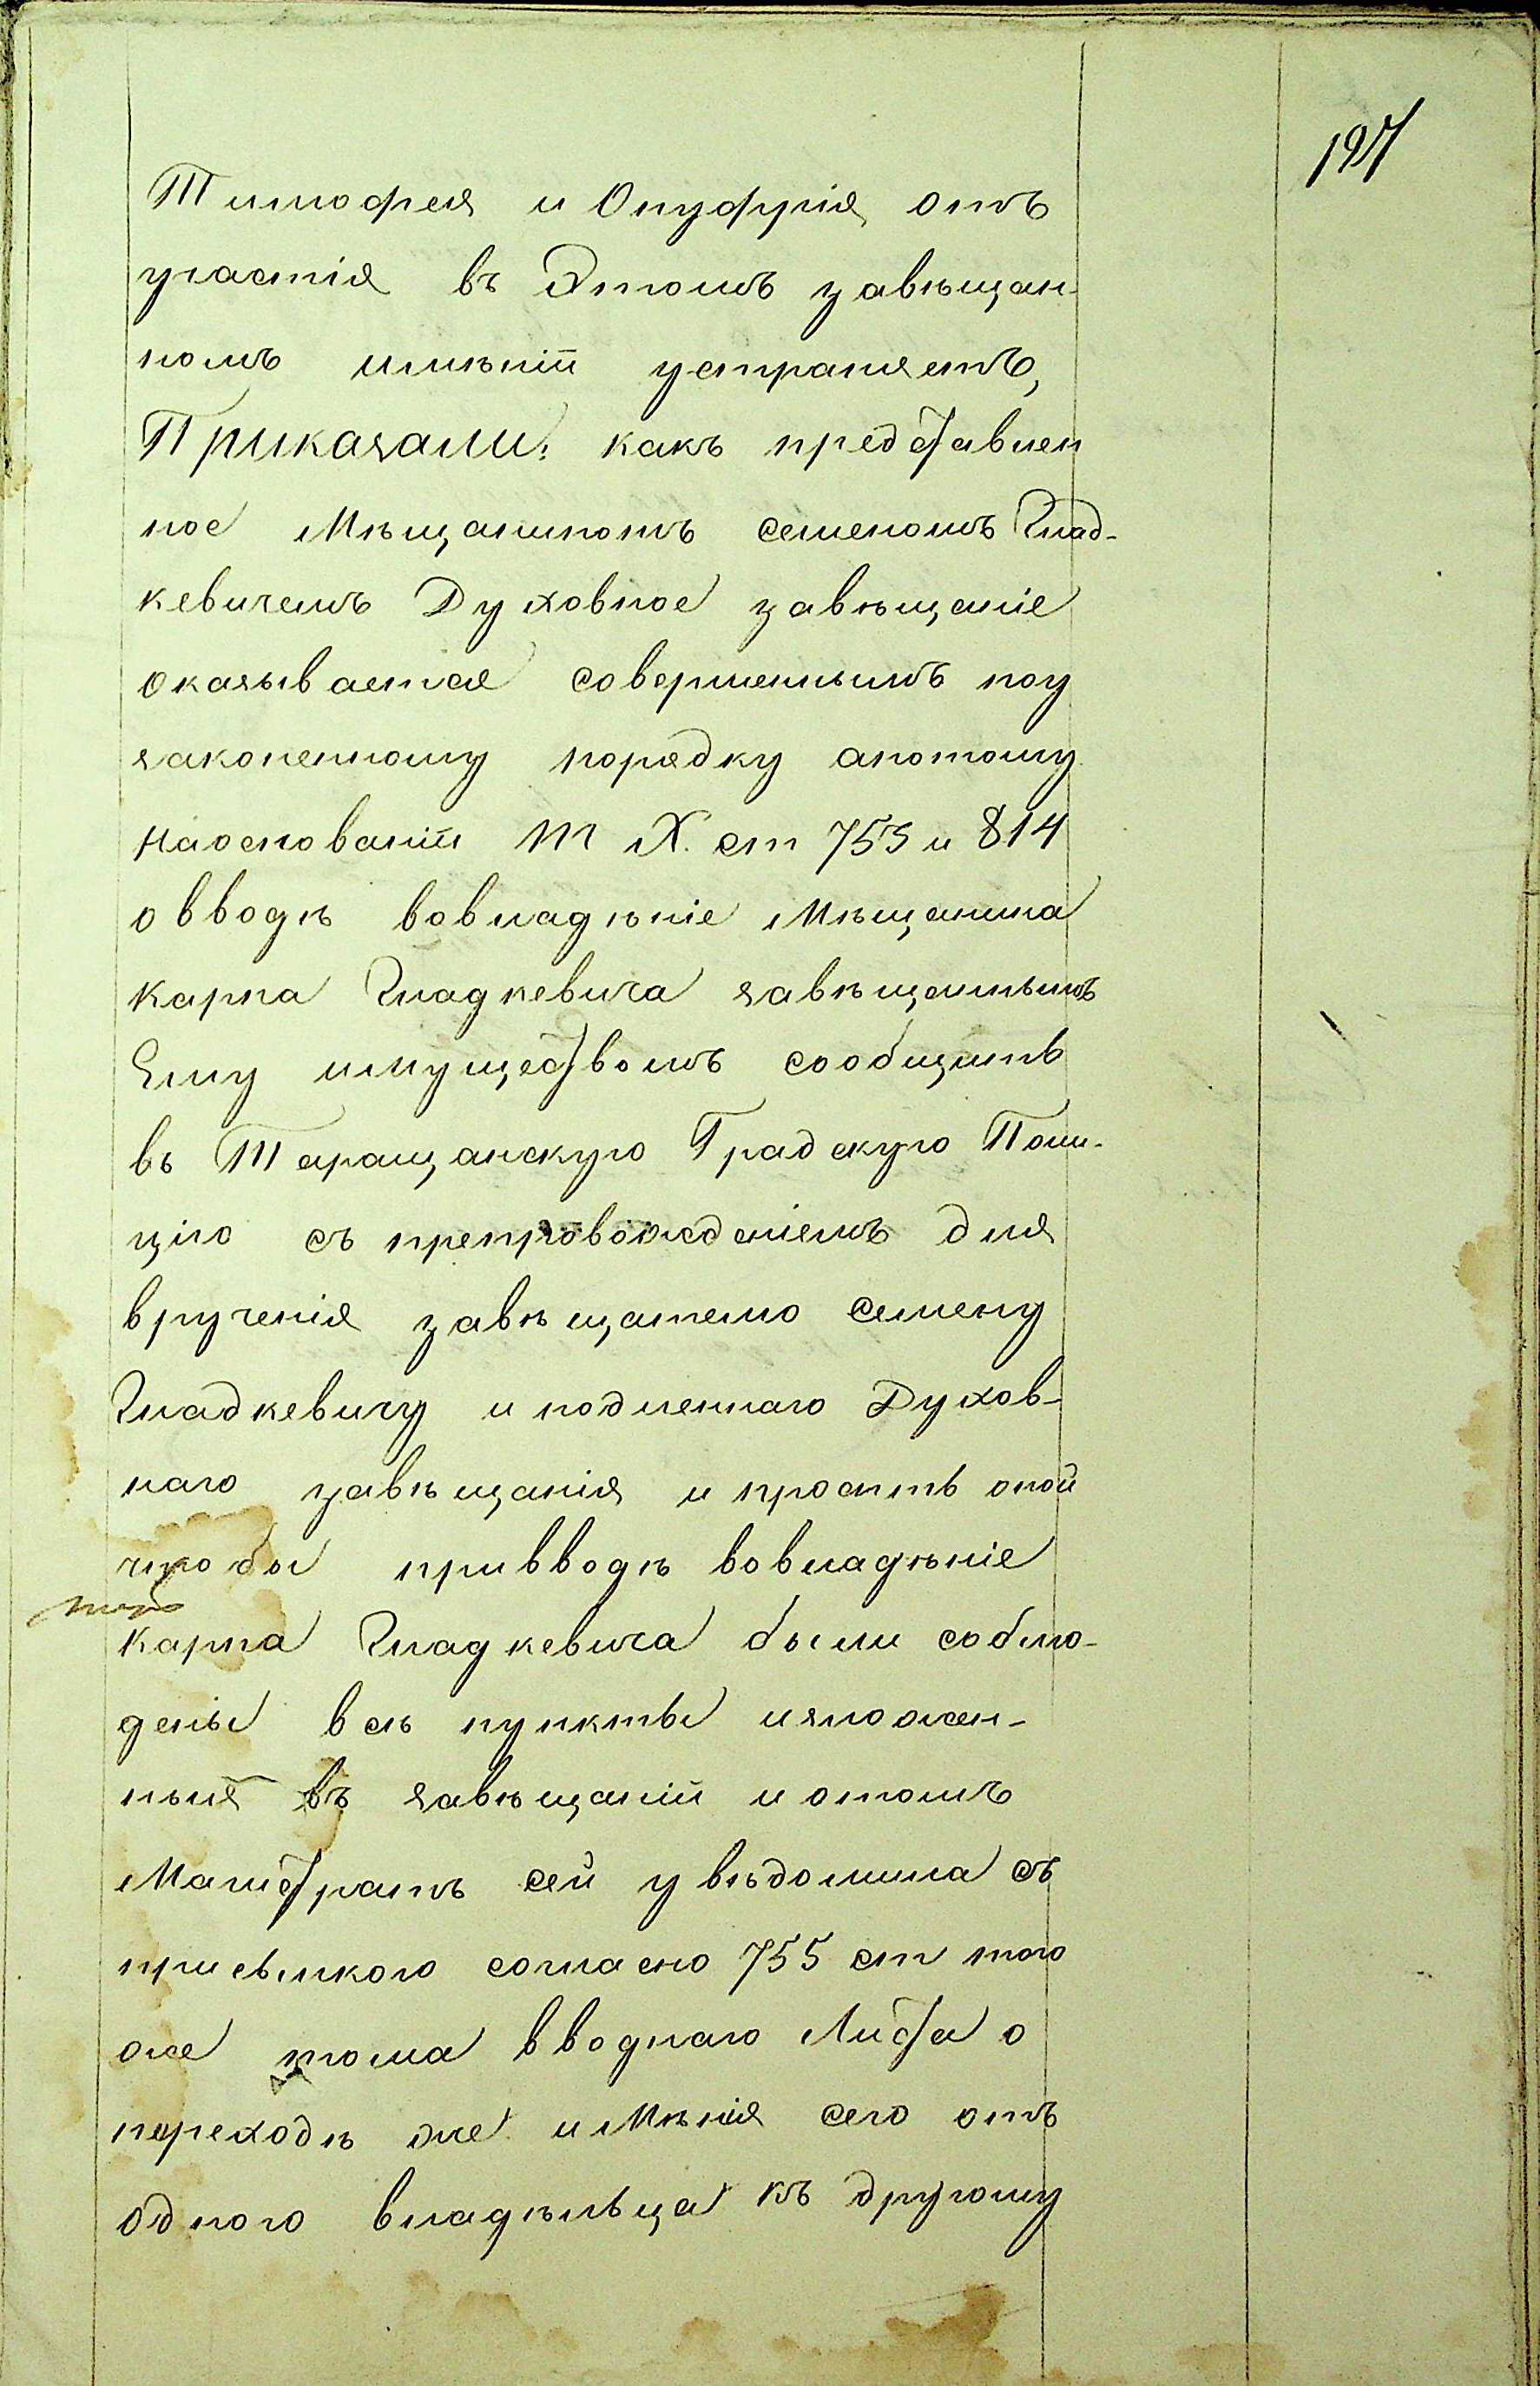 197
Тимофея и Онуфрія отъ
участія въ Этомъ завѣщан-
номъ имѣніи устраняетъ,
Приказали: какъ представлен
ное Мѣщаниномъ семеномъ Глад-
кевичемъ Духовное завѣщаніе
оказывается совершеннымъ поу
законенному порядку апотому
наоснованіи Т Х. ст 753 и 814
овводѣ вовладѣніе Мѣщанина
карпа Гладкевича завѣщаннымъ
Ему имуществомъ сообщить
въ Таращанскую Градскую Поли-
цію съ препровожденіемъ для
врученія завѣщателю семену
Гладкевичу и подленнаго Духов-
наго завѣщанія и просить оной
чтобы привводѣ вовладѣніе
карпа Гладкевича были соблю-
дены всѣ пункты изложен-
ныя въ завѣщаніи иотомъ
Магистратъ сей увѣдомила съ
присылкого согласно 755 ст того
же тома вводнаго Листа о
переходѣ же имѣнія сего отъ
одного владѣльца къ другому